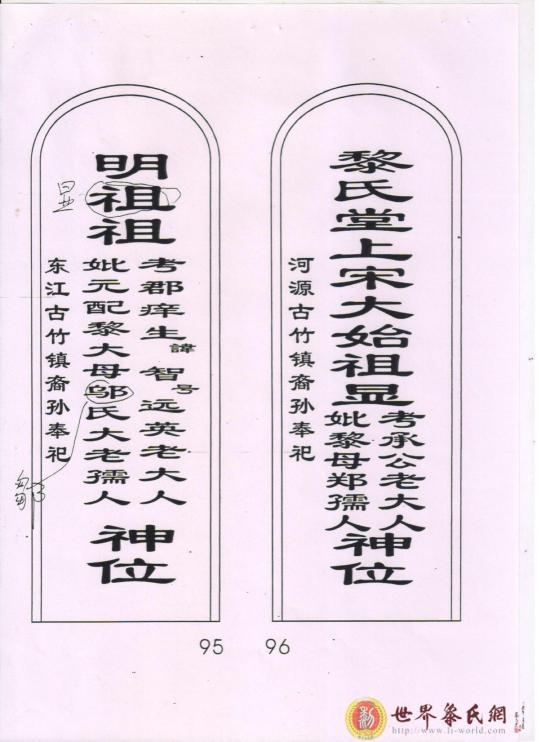 明祖祖
考郡痒生諱智号远英老大人
妣元配黎大母邬氏大老孺人
神位
东江古竹镇裔孙奉祀
显
鄒
95
黎氏堂上宋大始祖显
考承公老大人
妣黎母郑孺人
神位
河源古竹镇裔孙奉祀
96
世界黎氏網
http://www.li-world.com